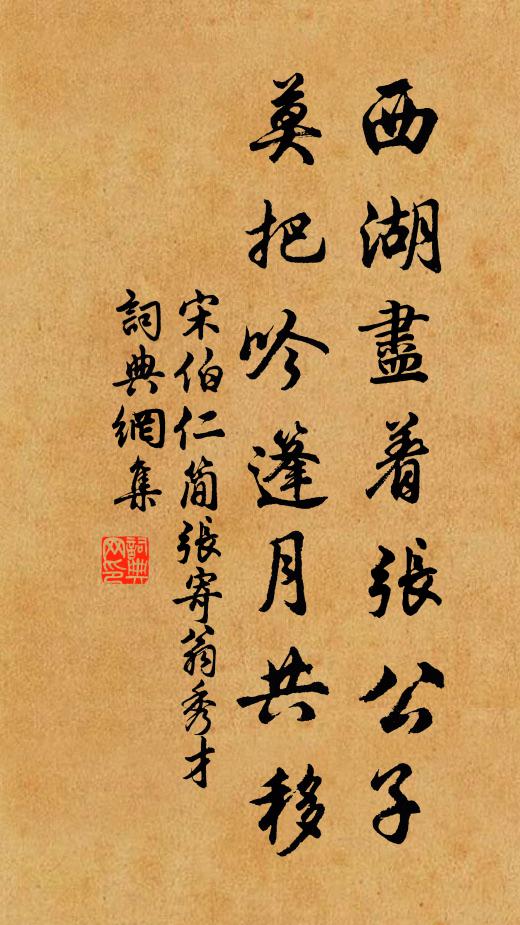 西湖盡着張公子
莫把吟篷月共移
宋伯仁簡張寄翁秀才
詞典網集
詞典网印